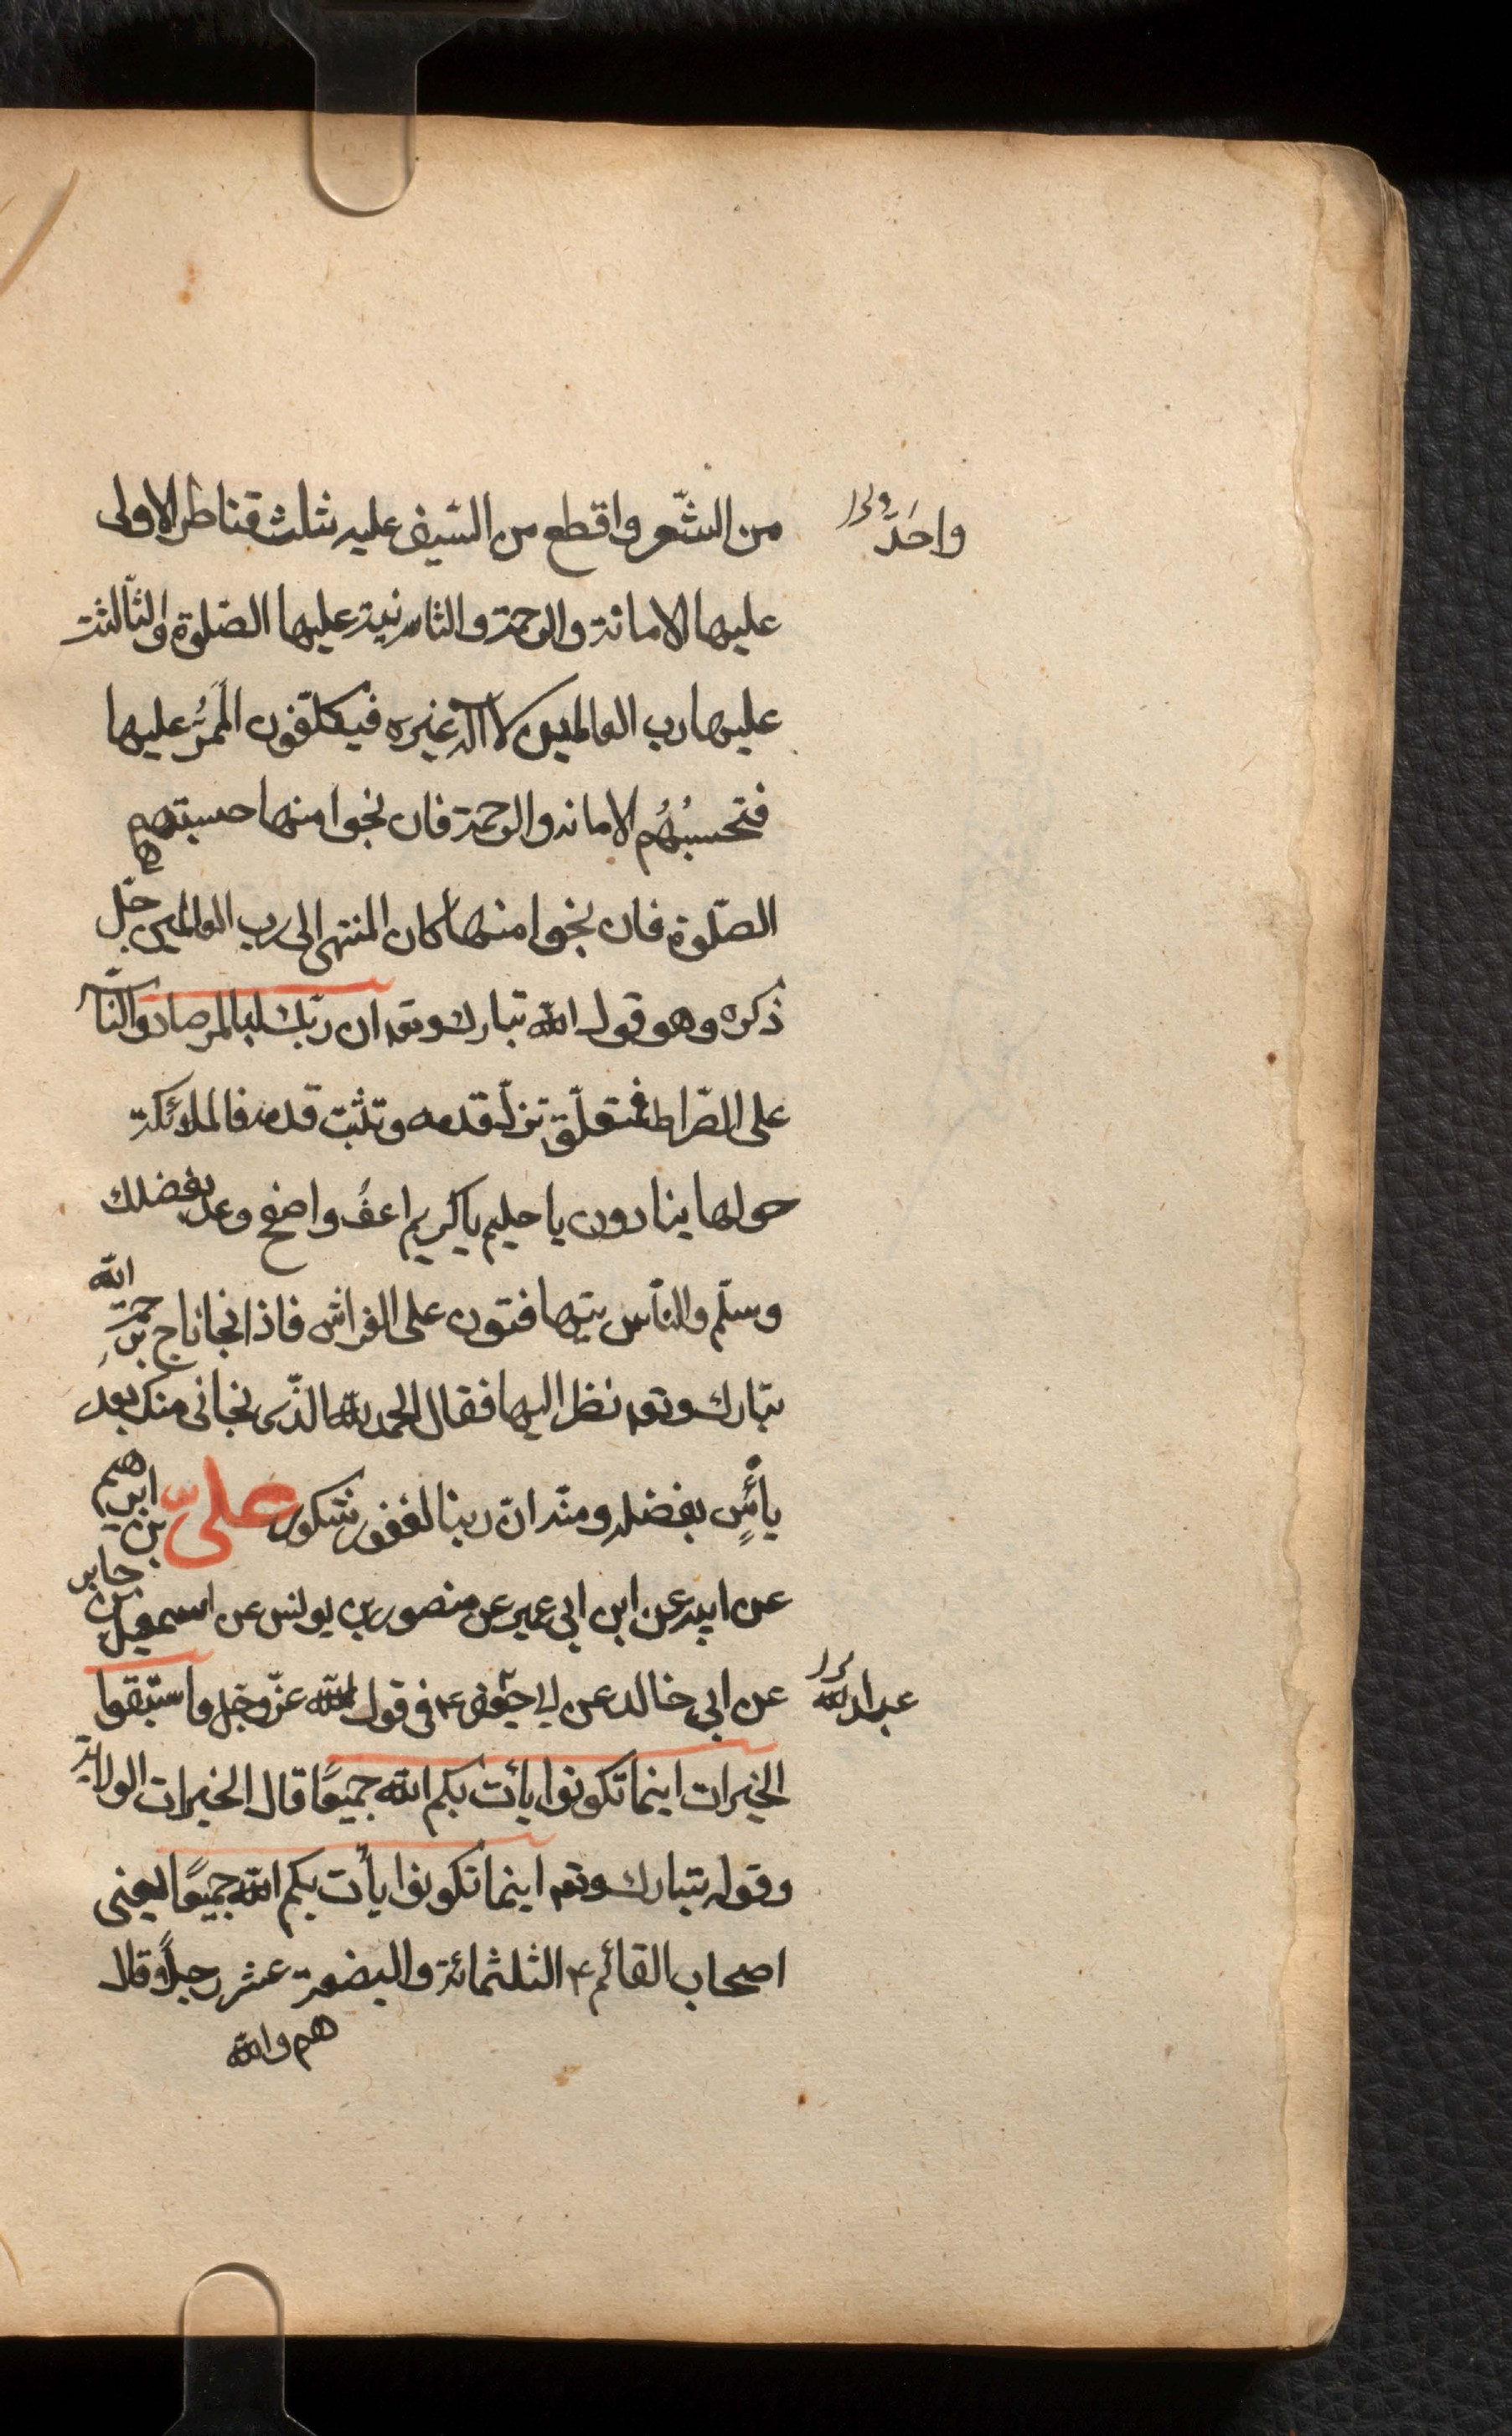 من الشّعر واقطع من السّيف عليه ثلث قناطر الاولى
واحَدّ
عليها الامانة والرحمة والثانية عليها الصّلوة والثّالثة
عليها رب العالمين لا اله غيره فيكلّفون المَمَرُّ عليها
فتحسبُهُم الامانة والرحمة فان نجوا منها حسبتهم
الصّلوة فان نجوا منها كان المنتهى الى رب العالمين جلّ
ذكره وهو قول الله تبارك وتعـ ان ربّك لبالمرصاد والنّاس
على الصّراط فمتعلّق تزلّ قدمه وتثبت قدمه فالملائكة
حولها ينادون يا حليم يا كريم اعفُ واصفح وعد بفضلك
وسلّم والنّاس يتهافتون على الفراش فاذا نجا ناج برحمة الله
تبارك وتعـ نظر اليها فقال الحمد لله الذّى نجانى منك بعد
يأسٍ بفضله ومنّه انّ ربنا لغفور شكور علىّ بن ابرهيم
عن ابيه عن ابن ابى عمير عن منصور بن يونس عن اسمعيل بن جابر
عن ابى خالد عن ابى جعفر ع فى قول الله عزّ وجل واستبقوا
عبد الله
الخيرات اينما تكونوا يأت بكم الله جميعًا قال الخيرات الولاية
وقوله تبارك وتعـ اينما تكونوا يأت بكم الله جميعًا يعنى
اصحاب القائم ع الثلثمائة والبضعة عشر رجلًا وقال
هم والله